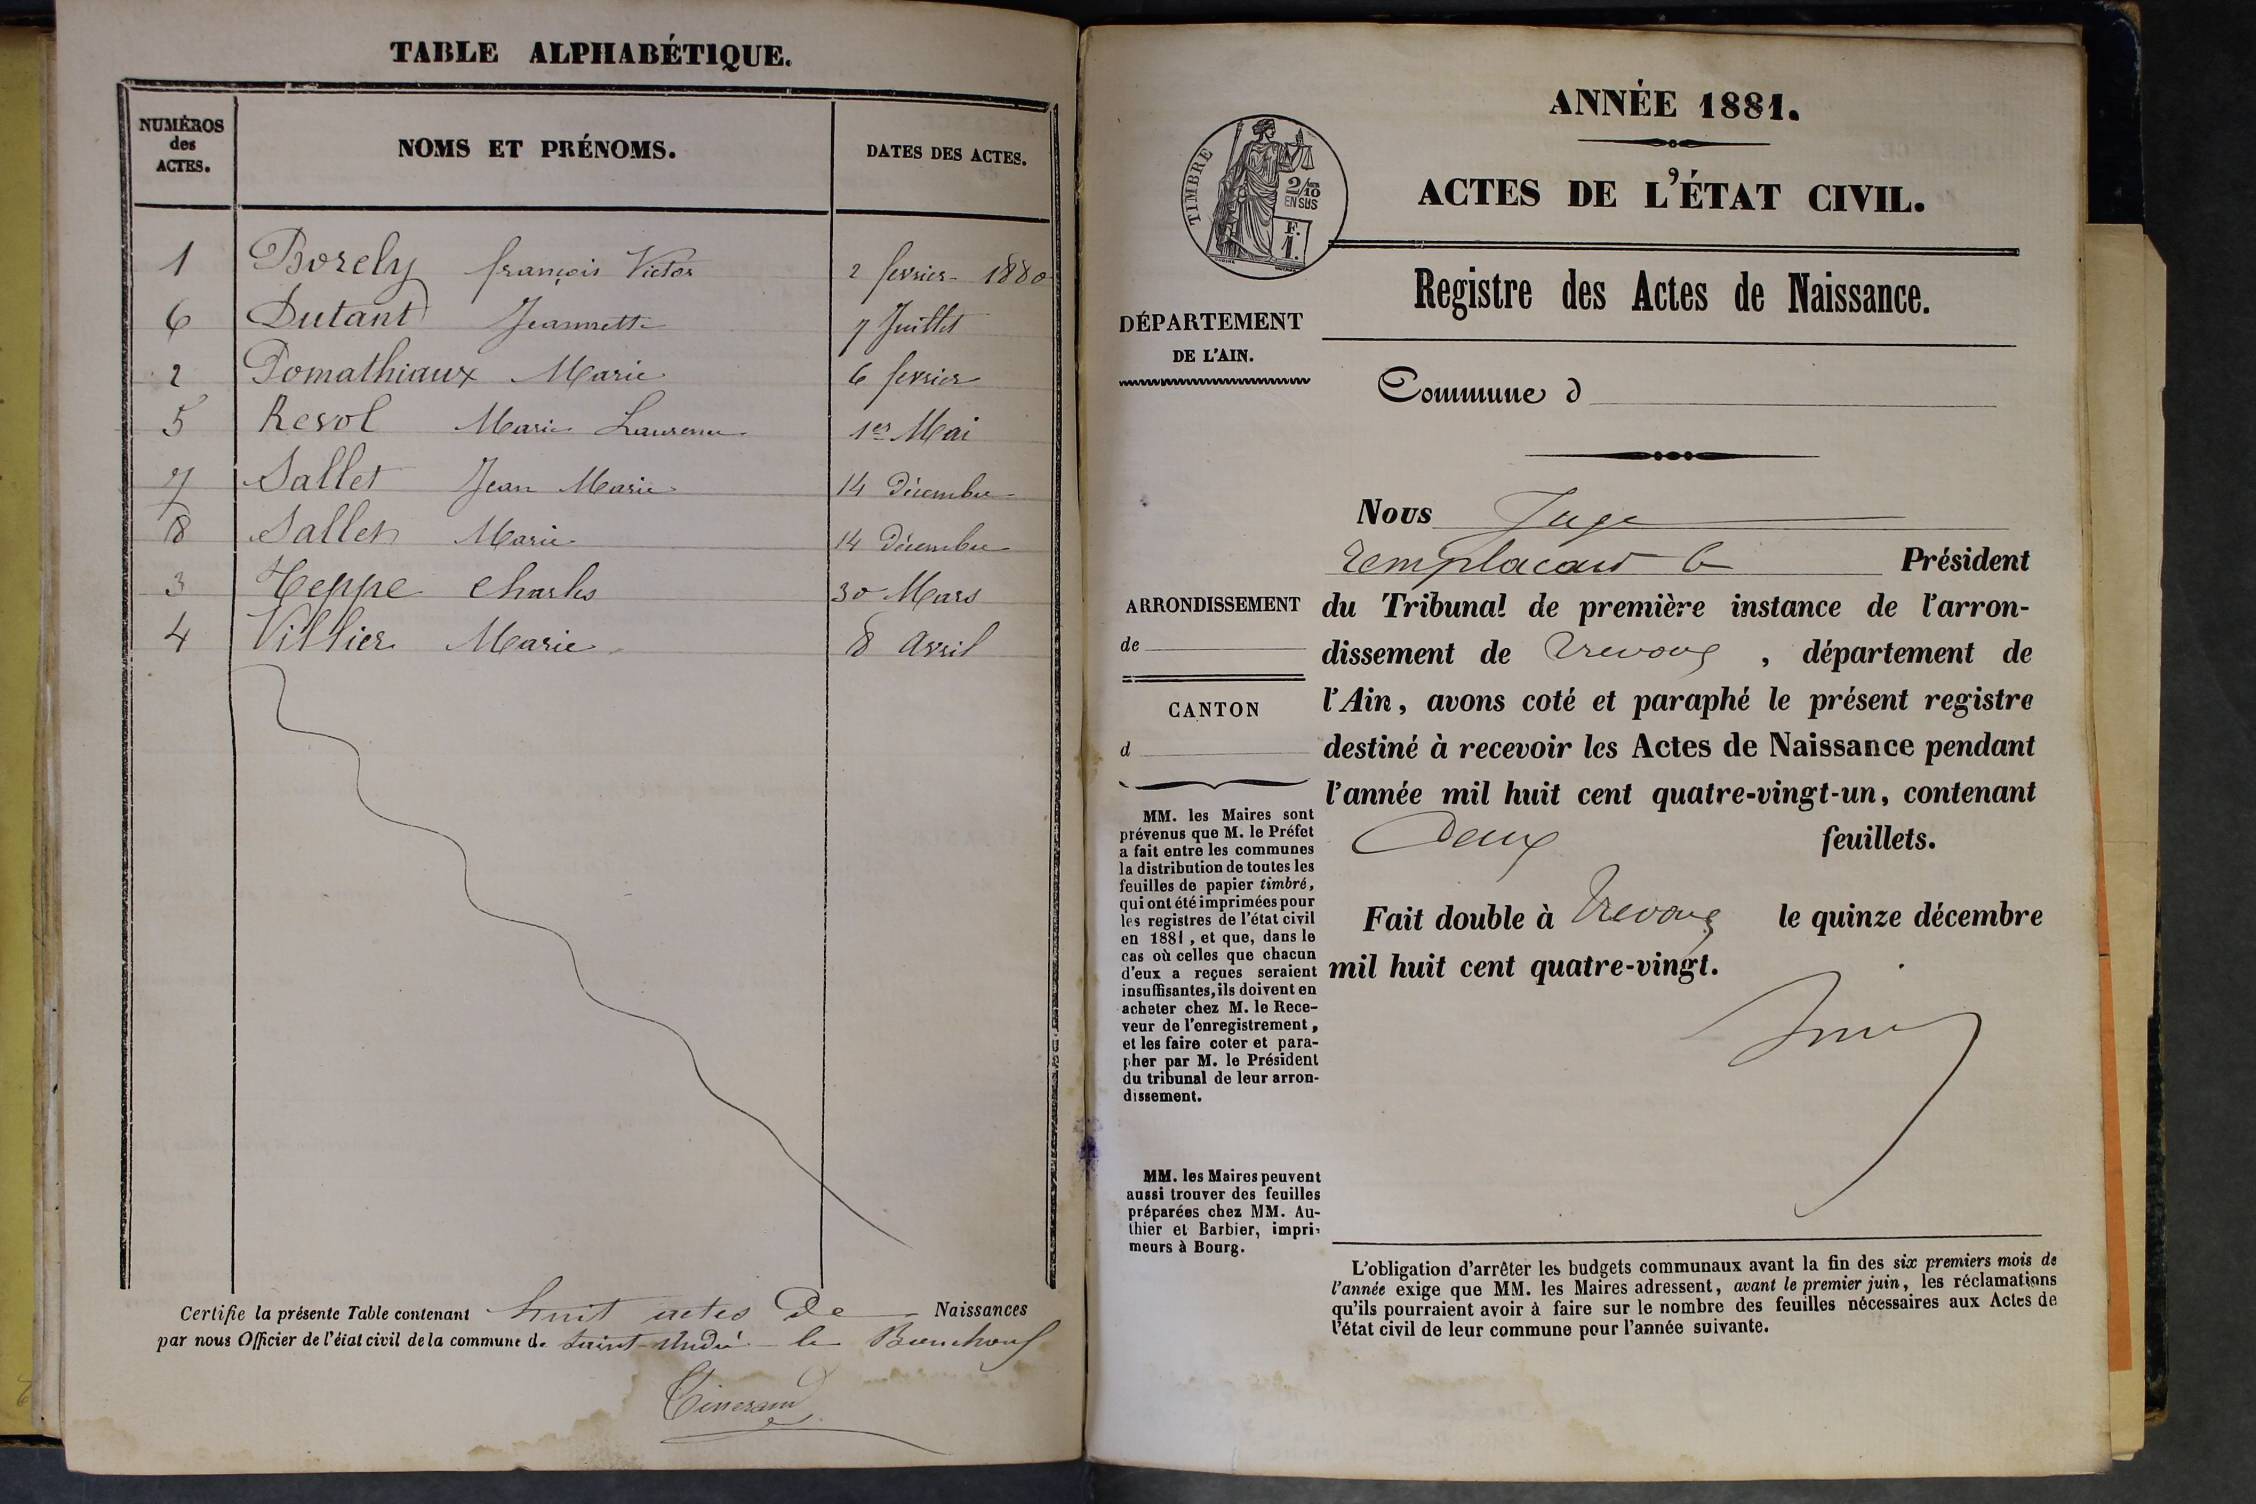 TABLE ALPHABÉTIQUE.
NUMÉROS des ACTES.
NOMS ET PRÉNOMS.
DATES DES ACTES.
1 Borely françois Victor 2 fevrier 1880
6 Dutant Jeannette 7 Juillet
2 Pomathiaux Marie 6 fevrier
5 Revol Marie 1er Mai
7 Sallet Jean Marie 14 Décembre
8 Sallet Marie 14 Décembre
3 Teppe Charles 30 Mars
4 Villier Marie 8 Avril
Certifie la présente Table contenant huit actes De Naissances
par nous Officier de l'état civil de la commune de Saint-André-le Bouchoux
ANNÉE 1881.
ACTES DE L'ÉTAT CIVIL.
TIMBRE
2/10
EN SUS
F.
1.
Registre des Actes de Naissance.
DÉPARTEMENT
DE L'AIN.
Commune d
Nous Juge
remplacant le Président
du Tribunal de première instance de l'arron-
dissement de Trevoux, département de
l'Ain, avons coté et paraphé le présent registre
destiné à recevoir les Actes de Naissance pendant
l'année mil huit cent quatre-vingt-un, contenant
Deux feuillets.
Fait double à Trevoux le quinze décembre
mil huit cent quatre-vingt.
ARRONDISSEMENT
de
CANTON
d
MM. les Maires sont
prévenus que M. le Préfet
a fait entre les communes
la distribution de toutes les
feuilles de papier timbré,
qui ont été imprimées pour
les registres de l'état civil
en 1881, et que, dans le
cas où celles que chacun
d'eux a reçues seraient
insuffisantes, ils doivent en
acheter chez M. le Rece-
veur de l'enregistrement,
et les faire coter et para-
pher par M. le Président
du tribunal de leur arron-
dissement.
MM. les Maires peuvent
aussi trouver des feuilles
préparées chez MM. Au-
thier et Barbier, impri-
meurs à Bourg.
L'obligation d'arrêter les budgets communaux avant la fin des six premiers mois de
l'année exige que MM. les Maires adressent, avant le premier juin, les réclamations
qu'ils pourraient avoir à faire sur le nombre des feuilles nécessaires aux Actes de
l'état civil de leur commune pour l'année suivante.